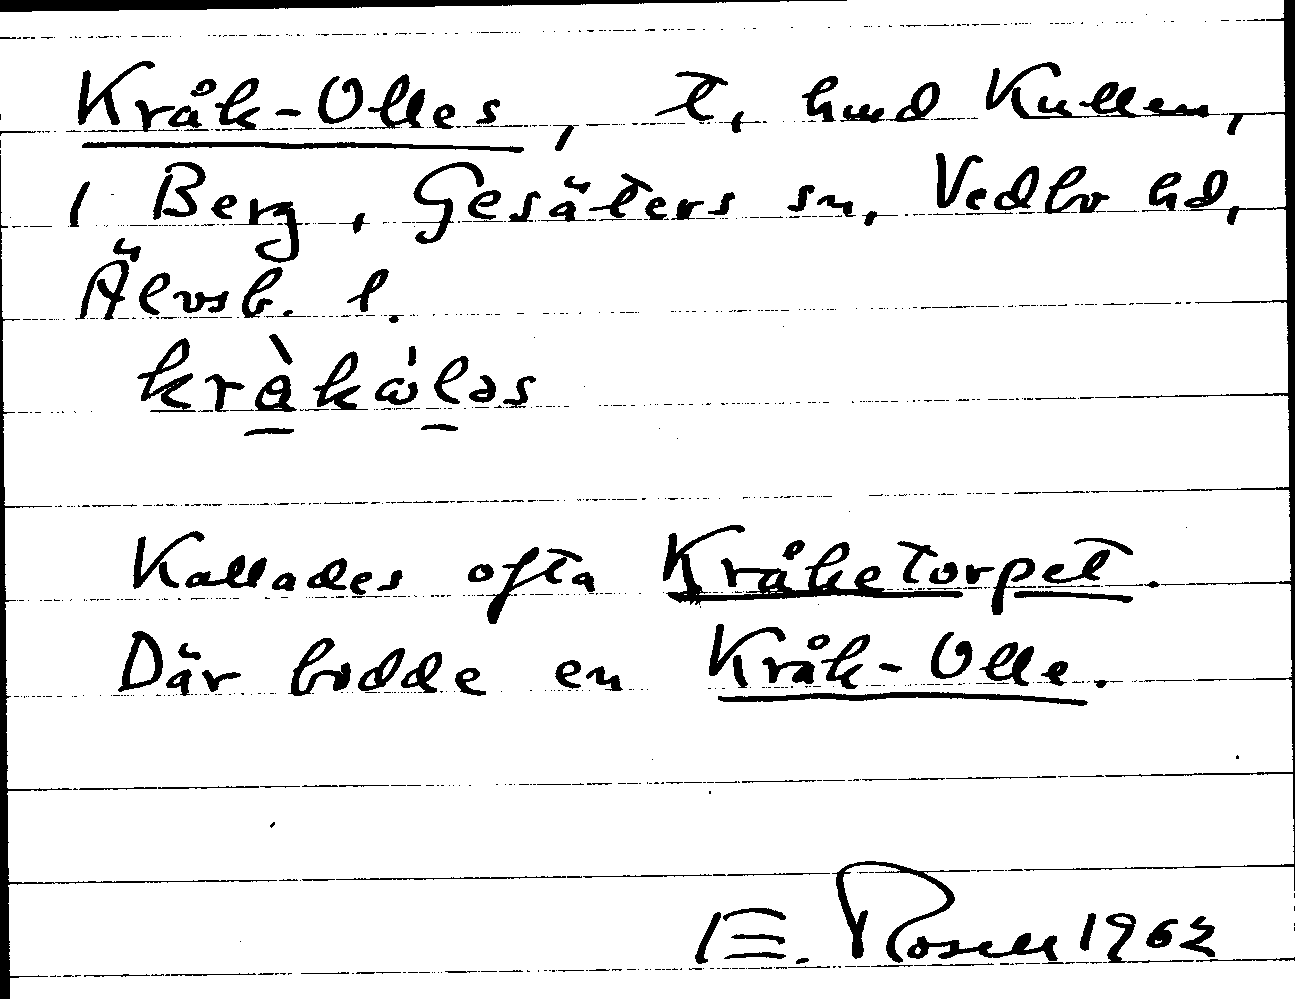 Kråk-Olles, t, hmd Kullen,
i Berg, Gesäters sn, Vedbo hd,
Älvsb. l.
Kallades ofta Kråketorpet.
Där bodde en Kråk-Olle.
E. Rosell 1962